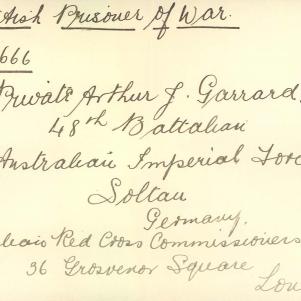 itish Prisoner of War.
666
Private Arthur J. Garrard,
48th Battalian
Australian Imperial Forc
Soltau
Germany.
lian Red Cross Commissioners
36 Grosvenor Square
Lon